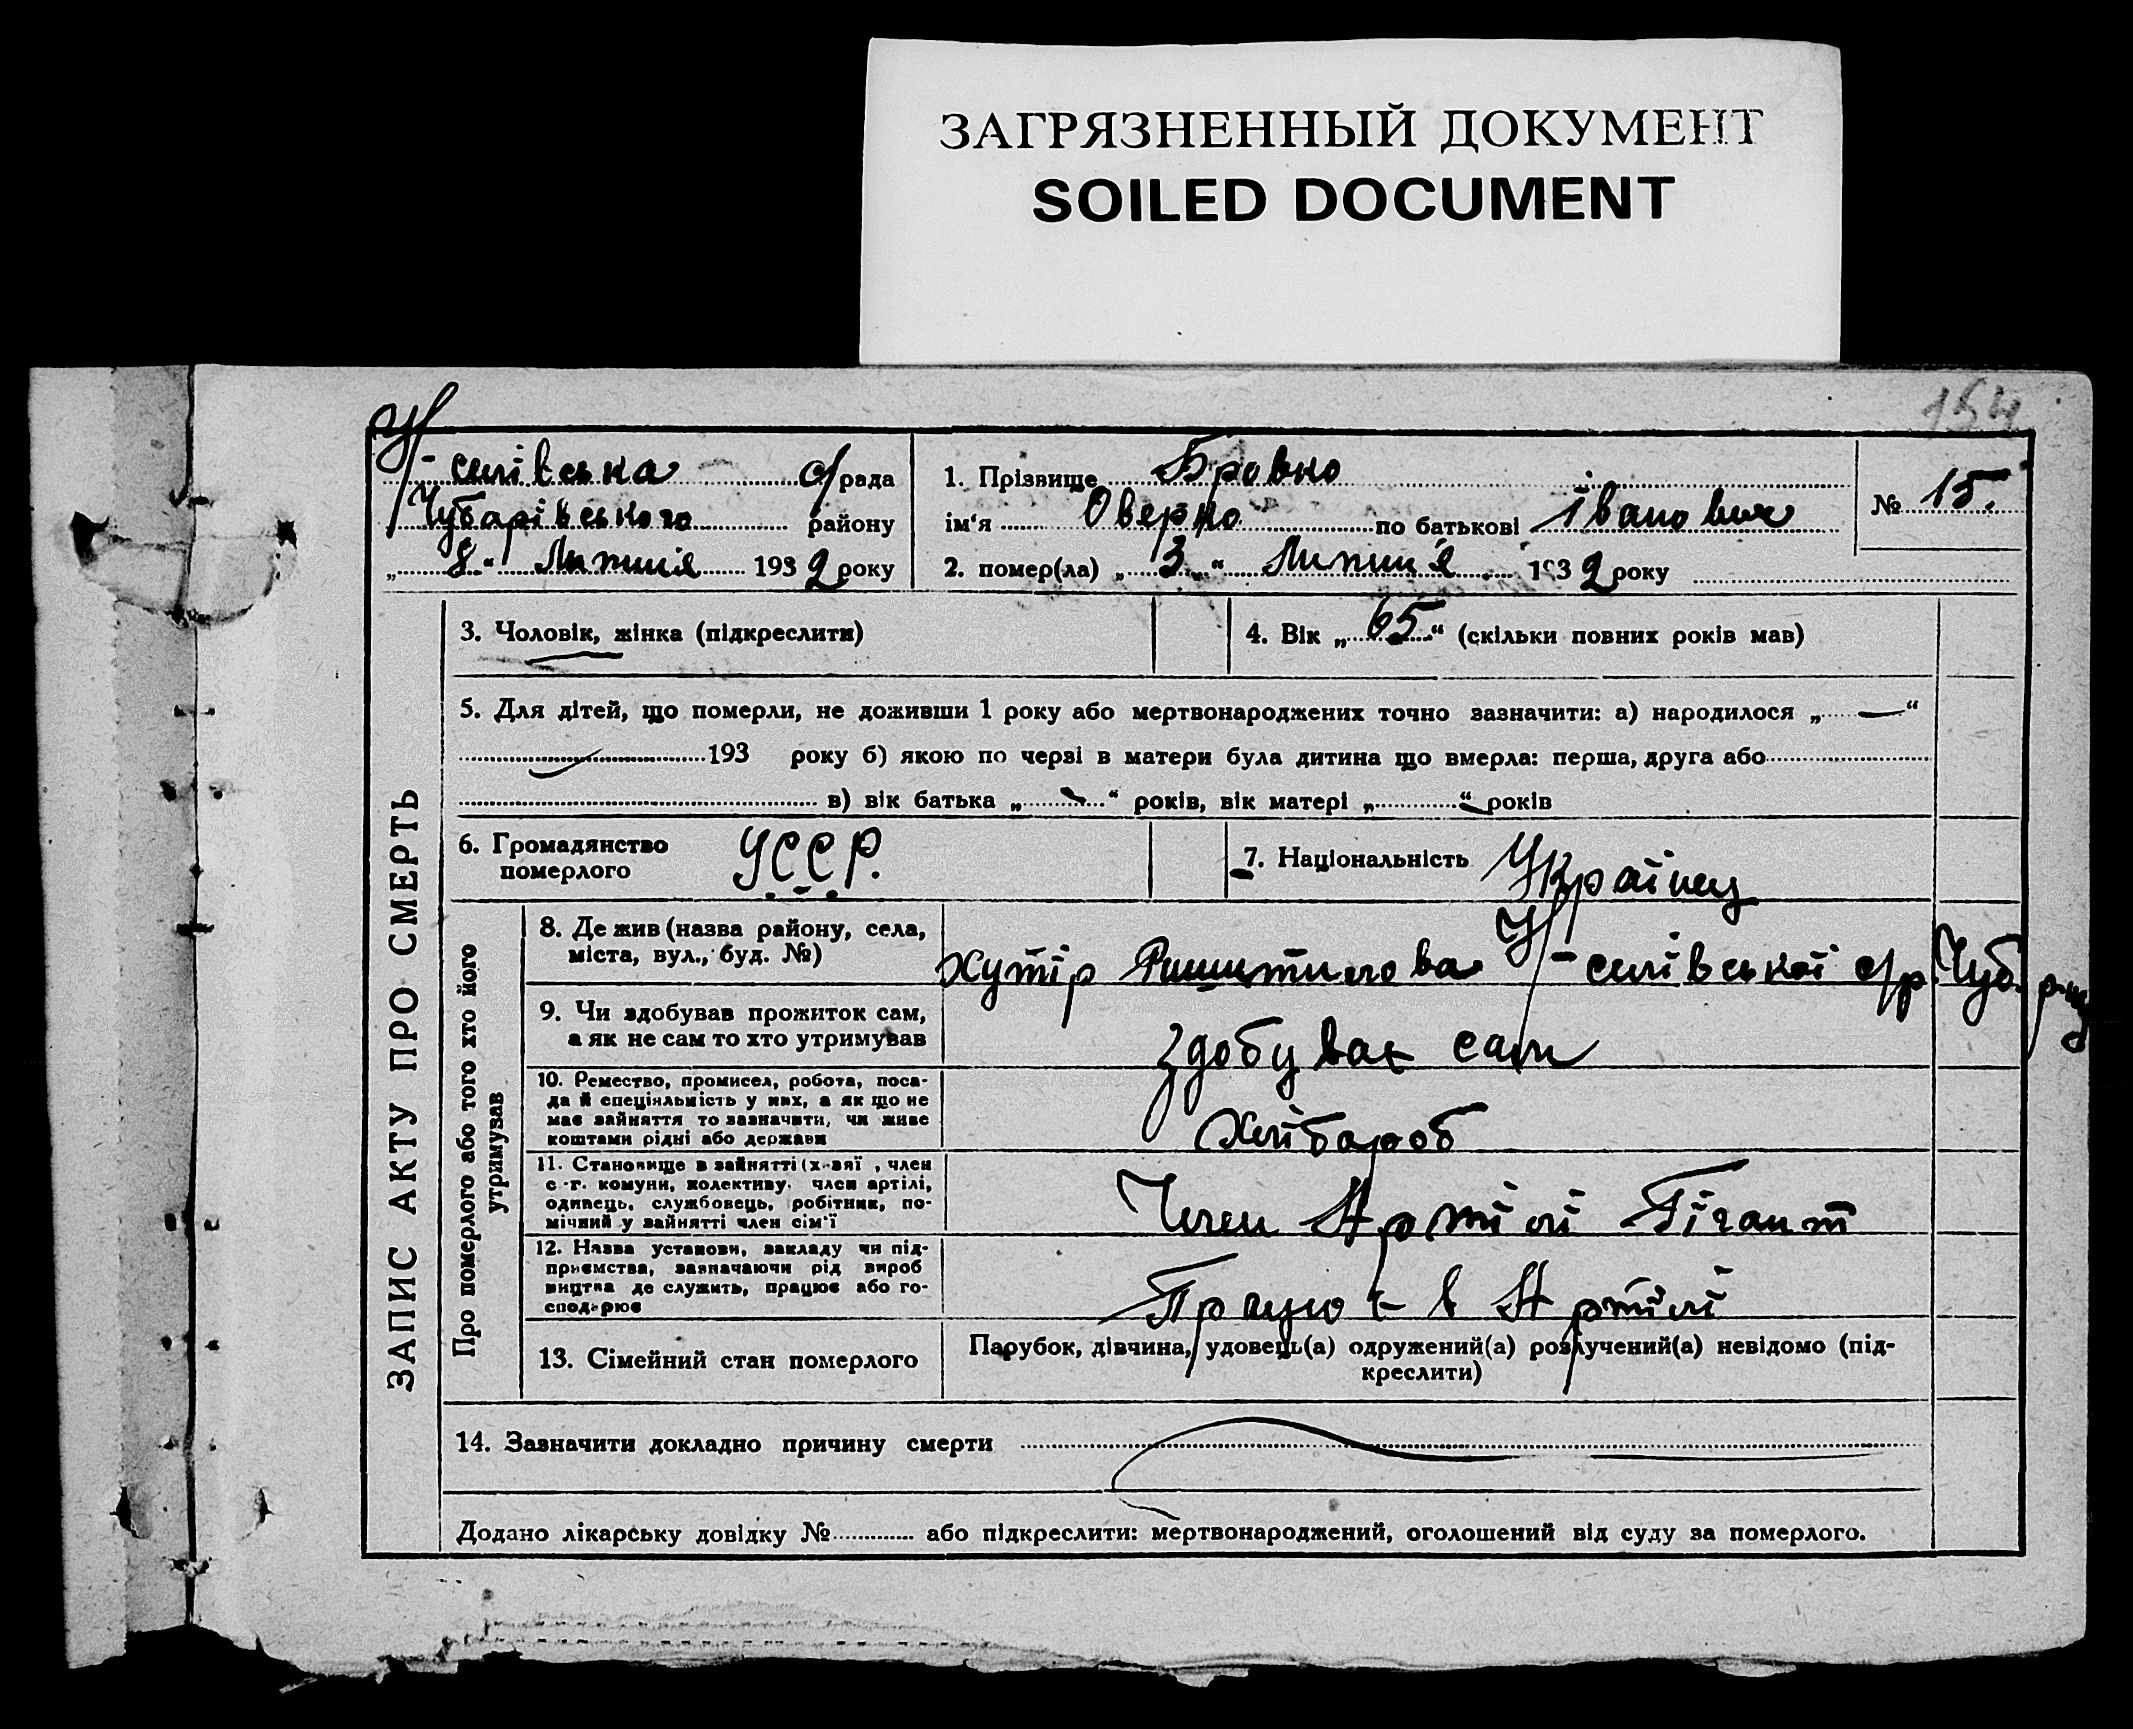 ЗАГРЯЗНЕННЫЙ ДОКУМЕНТ
SOILED DOCUMENT
154
У-
селівська с/рада
Чубарівського району
„8“ Липння 1932 року
1. Прізвище Бровко
ім‘я Оверко по батькові Іванович
№ 15.
2. помер(ла) „3“ Липння 1932 року
ЗАПИС АКТУ ПРО СМЕРТЬ
3. Чоловік, жінка (підкреслити)
4. Вік „65“ (скільки повних років мав)
5. Для дітей, що померли, не доживши 1 року або мертвонароджених точно зазначити: а) народилося „—“
193 року б) якою по черзі в матери була дитина що вмерла: перша, друга або
в) вік батька „-“ років, вік матері „-“ років
6. Громадянство
померлого
УССР.
7. Національність Українец
Про померлого або того хто його
утримував
8. Де жив (назва району, села,
міста, вул., буд. №)
хутір У-селівської с/р. Чуб. р-ну
9. Чи здобував прожиток сам,
а як не сам то хто утримував
Здобував сам
10. Ремество, промисел, робота, поса-
да й спеціяльність у них, а як що не
має зайняття то зазначити, чи живе
коштами рідні або держави
Хлібароб
11. Становище в зайнятті (х-вяї , член
с.-г. комуни, колективу, член артілі,
одинець, службовець, робітник, по-
мічний у зайнятті член сім‘ї
Член Артілі Гігант
12. Назва установи, закладу чи під-
приємства, зазначаючи рід вироб
ництва де служить, працює або го-
сподарює
Працює в Артілі
13. Сімейний стан померлого
Парубок, дівчина, удовець(а) одружений(а) розлучений(а) невідомо (під-
креслити)
14. Зазначити докладно причину смерти
Додано лікарську довідку № або підкреслити: мертвонароджений, оголошений від суду за померлого.